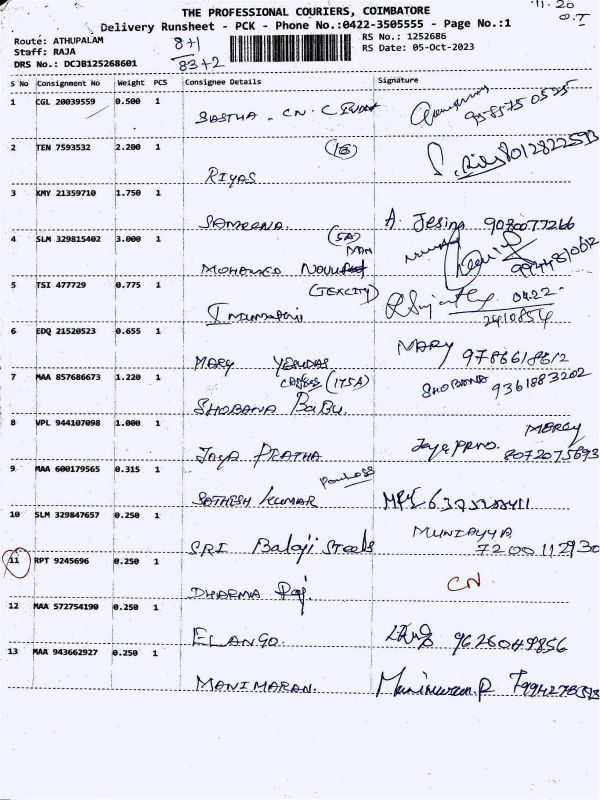 11.20
O.T
THE PROFESSIONAL COURIERS, COIMBATORE
Delivery Runsheet - PCK - Phone No.:0422-3505555 - Page No.:1
Route: ATHUPALAM
Staff: RAJA
DRS No.: DCJB125268601
8+1
83+2
RS No.: 1252686
RS Date: 05-Oct-2023
S No Consignment No Weight PCS Consignee Details Signature
1 CGL 20039559 0.500 1
SASTHA - CN - C
2 TEN 7593532 2.200 1
RIYAS
3 KMY 21359710 1.750 1
SAMEENA. A. Jesina 9080077266
4 SLM 329815402 3.000 1 (5A)
MAN
MOHAMED
5 TSI 477729 0.775 1 (TEXCITY)
0422-
2410854
6 EDQ 21520523 0.655 1
MARY YESUDAS MARY 9786618612
7 MAA 857686673 1.220 1 (175A)
SHOBANA BABU. SHOBANA 9361883202
8 VPL 944107098 1.000 1 MERCY
JAYA PRATHA 8072075693
9 MAA 600179565 0.315 1
SATHESH KUMAR
10 SLM 329847657 0.250 1 MUNIAYYA
SRI Balaji Steels 7200112930
11 RPT 9245696 0.250 1 CN
DHARMA Raj.
12 MAA 572754190 0.250 1
ELANGO. 9626049856
13 MAA 943662927 0.250 1
MANIMARAN.